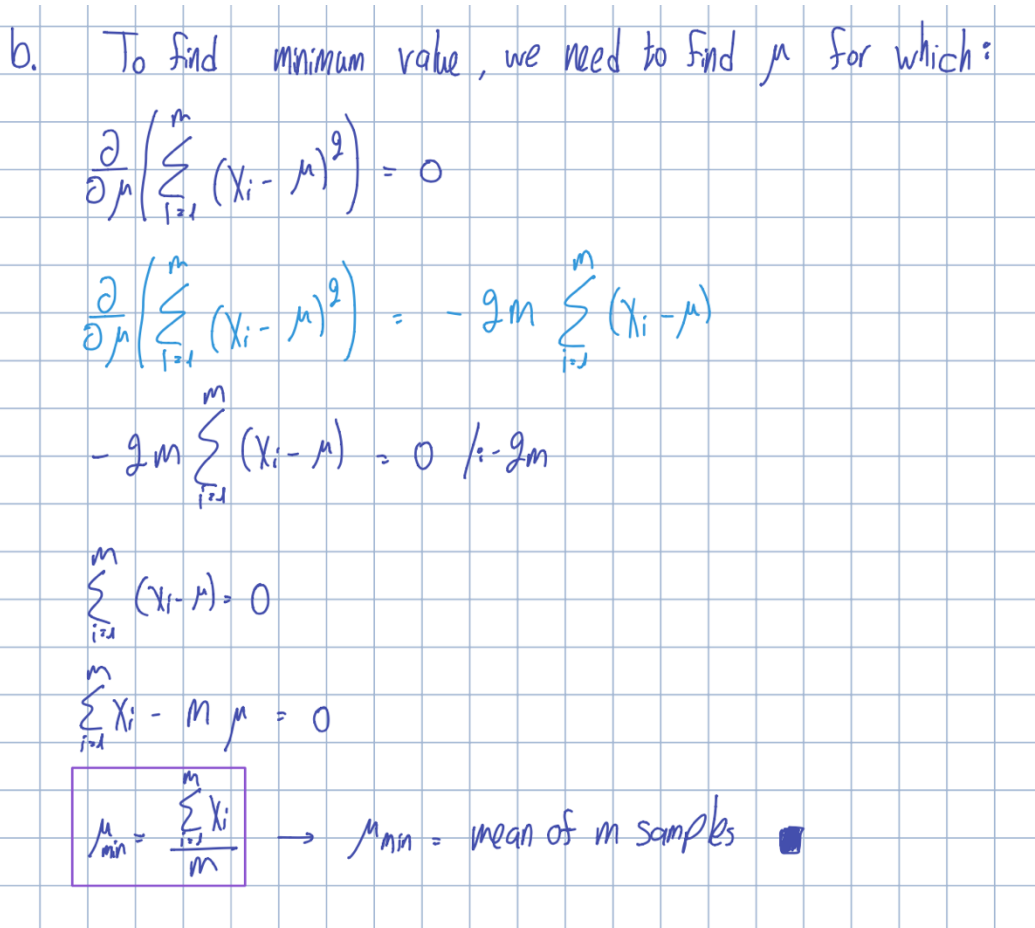 b. To find mnimum value, we need to find μ for which:
∂/∂μ (∑_{i=1}^{m} (x_i - μ)^2) = 0
∂/∂μ (∑_{i=1}^{m} (x_i - μ)^2) = -2m ∑_{i=1}^{m} (x_i - μ)
-2m ∑_{i=1}^{m} (x_i - μ) = 0 /:-2m
∑_{i=1}^{m} (x_i - μ) = 0
∑_{i=1}^{m} x_i - m μ = 0
μ_min = (∑_{i=1}^{m} x_i)/m → μ_min = mean of m samples ■